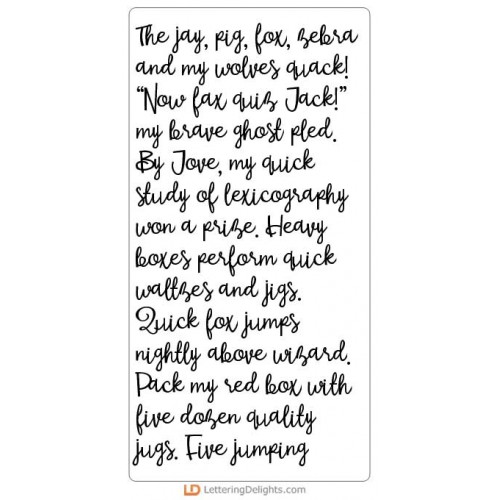 The jay, pig, fox, zebra
and my wolves quack!
“Now fax quiz Jack!”
my brave ghost pled.
By Jove, my quick
study of lexicography
won a prize. Heavy
boxes perform quick
waltzes and jigs.
Quick fox jumps
nightly above wizard.
Pack my red box with
five dozen quality
jugs. Five jumping
LD LetteringDelights.com